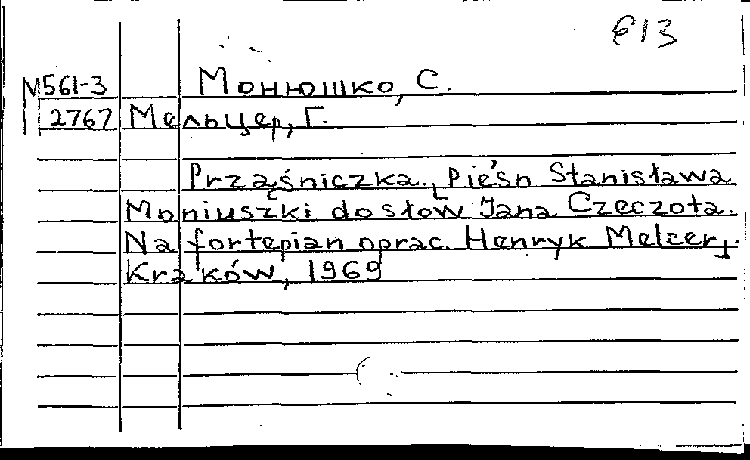 613
М561-3 Монюшко, С.
2767 Мельцер, Г.
Prząśniczka. [Pieśn Stanisława
Moniuszki do słów Jana Czeczota.
Na fortepian oprac. Henryk Melcer].
Kraków, 1969